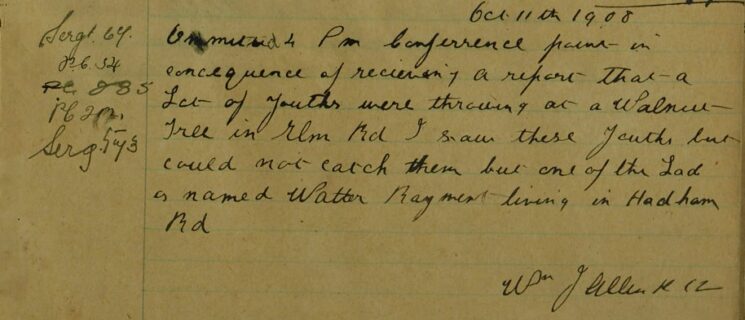 Oct 11th 1908
Sergt. 64.
P.C. 54
PC 285
PC 212.
Sergt. 573
Ommitted 4 Pm Conferrence point in
concequence of recieving a report that a
Lot of Youths were throwing at a Walnut
Tree in Elm Rd I saw these Youths but
could not catch them but one of the Lad
s named Walter Rayment living in Hadham
Rd
Wm J Allen